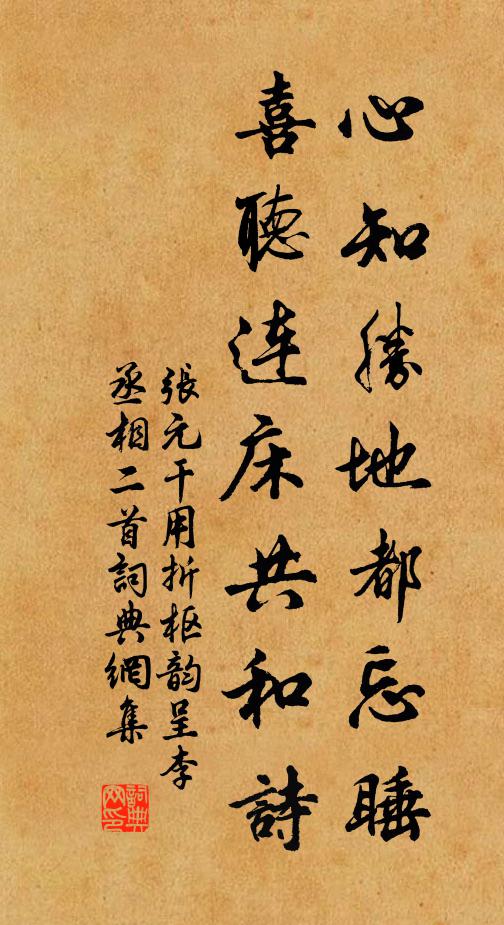 心知勝地都忘睡
喜聽連床共和詩
張元干用折枢韵呈李
丞相二首詞典網集
詞典網印